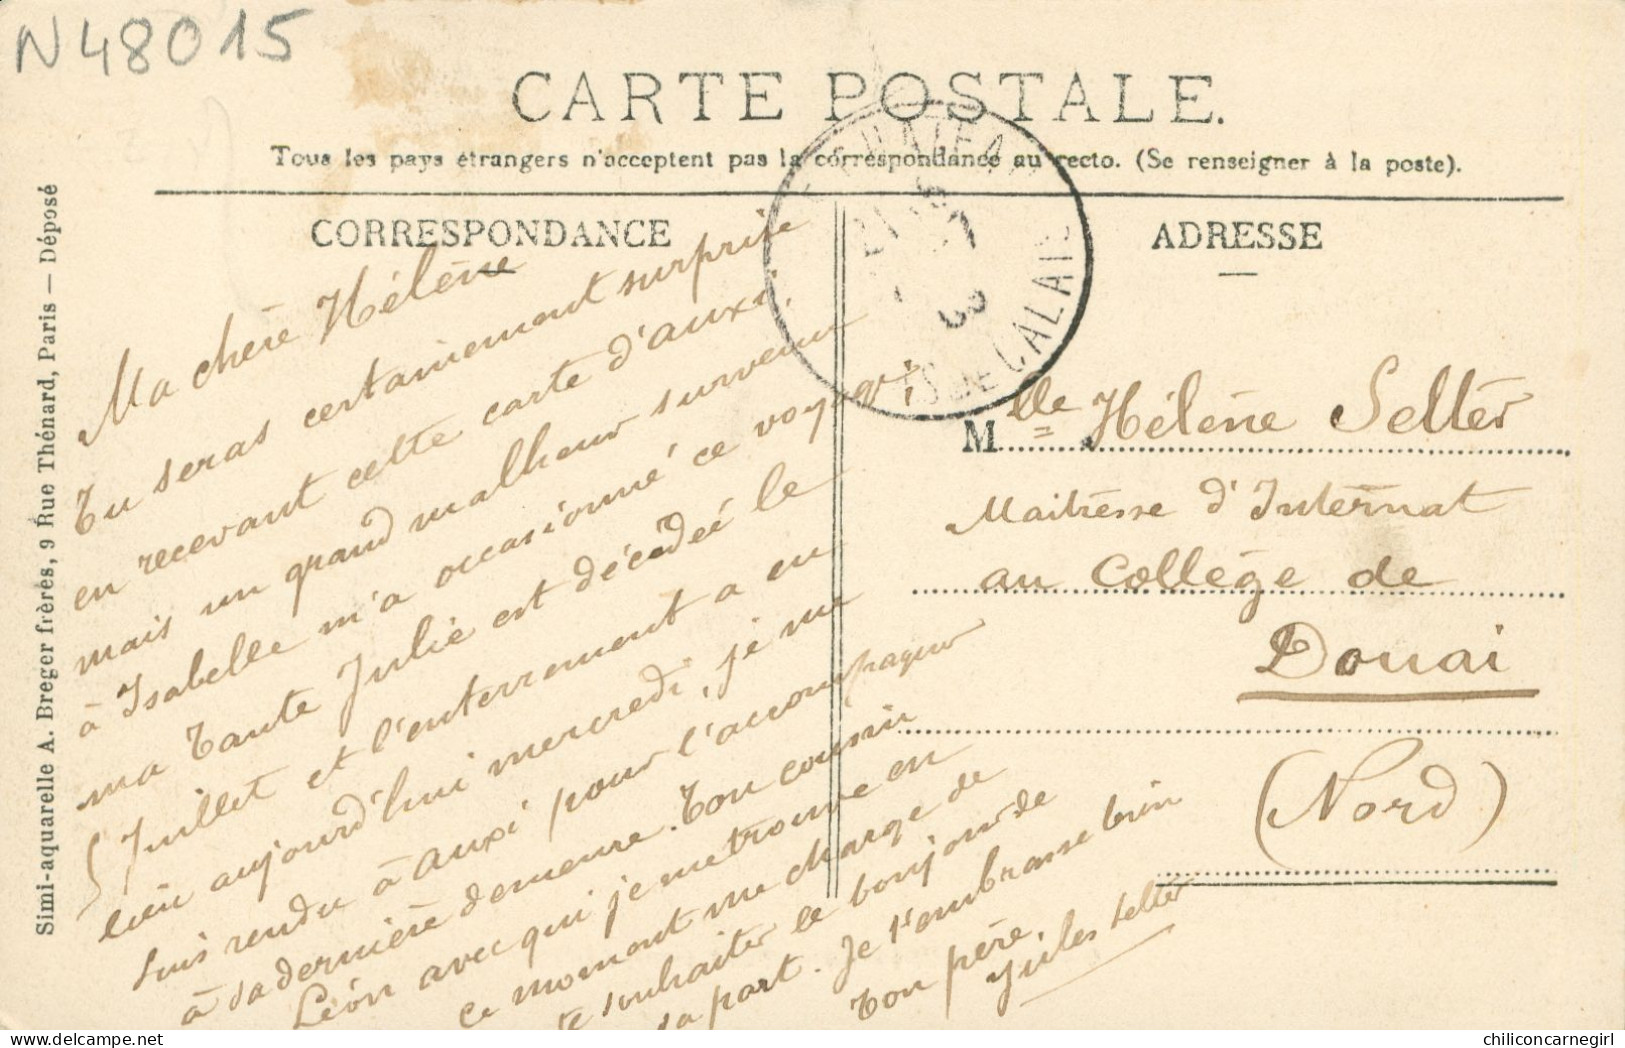 N48015
CARTE POSTALE.
Tous les pays étrangers n'acceptent pas la correspondance au recto. (Se renseigner à la poste).
CORRESPONDANCE
ADRESSE
Simi-aquarelle A. Breger frères, 9 Rue Thénard, Paris — Déposé
Ma chère Hélène
Tu seras certainement surprise
en recevant cette carte d'auxi,
mais un grand malheur survenu
à Isabelle m'a occasionné ce voyage
ma tante Julie est décédée le
5 Juillet et l'enterrement a eu
lieu aujourd'hui mercredi, je me
suis rendu à auxi pour l'accompagner
à sa dernière demeure. Ton cousin
Léon avec qui je me trouve en
ce moment me charge de
te souhaiter le bonjour de
sa part. Je t'embrasse bien
Ton père,
Jules Selter
DE CALAIS
Mlle Hélène Selter
Maitresse d'Internat
au Collège de
Douai
(Nord)
chiliconcarnegirl